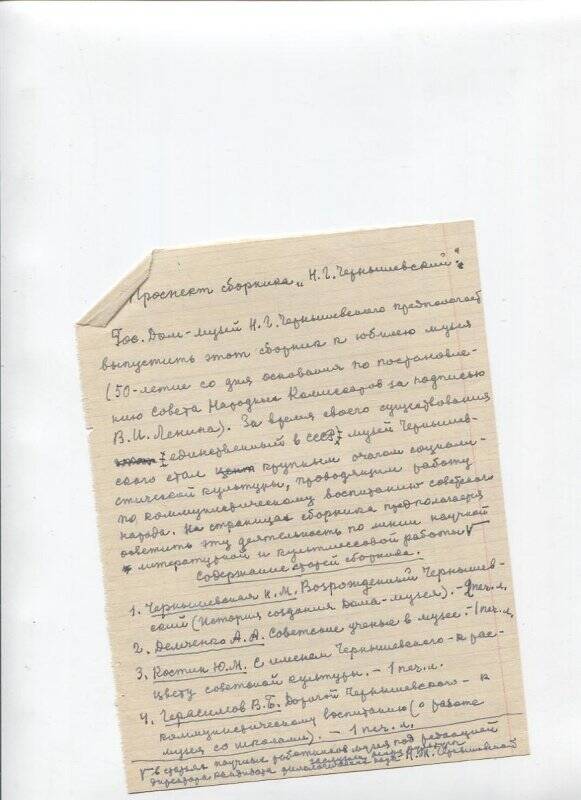 Проспект сборника „Н.Г. Чернышевский".
Гос. Дом-музей Н.Г. Чернышевского предполагает
выпустить этот сборник к юбилею музея
(50-летие со дня основания по постановле-
нию Совета Народных Комиссаров за подписью
В.И. Ленина). За время своего существования
единственный в СССР музей Чернышев-
ского стал крупным очагом социали-
стической культуры, проводящим работу
по коммунистическому воспитанию советского
народа. На страницах сборника предполагается
осветить эту деятельность по линии научной
литературной и культмассовой работы V
Содержание статей сборника.
1. Чернышевская Н.М. Возрожденный Чернышев-
ский (История создания Дома-музея). – 2 печ. л.
2. Демченко А.А. Советские ученые в музее. – 1 печ. л.
3. Костин Ю.М. С именем Чернышевского – к рас-
цвету советской культуры. – 1 печ. л.
4. Герасимов В.Б. Дорогой Чернышевского – к
коммунистическому воспитанию (о работе
музея со школами). – 1 печ. л.
V в статьях научных работников музея под редакцией
заслужен. культуры
директора кандидата филологических наук Н.М. Чернышевской